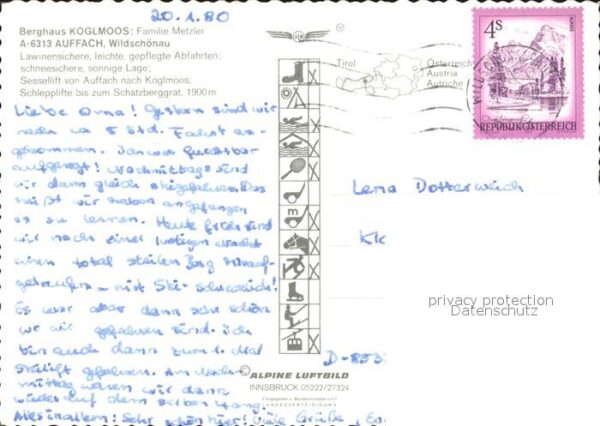 20.1.80
Berghaus KOGLMOOS: Familie Metzler
A-6313 AUFFACH, Wildschönau
Lawinensichere, leichte, gepflegte Abfahrten;
schneesichere, sonnige Lage;
Sessellift von Auffach nach Koglmoos,
Schlepplifte bis zum Schatzberggrat, 1900 m
Tirol
Österreich
Austria
Autriche
4S
REPUBLIK ÖSTERREICH
Liebe Oma! Gestern sind wir
nach ca 5 Std. Fahrt an-
gekommen. furchtbar
aufgeregt! Nachmittags sind
wir dann gleich skigefahren. Das
heißt wir haben angefangen
es zu lernen. Heute früh sind
wir nach einer lustigen Nacht
einen total steilen Berg hinauf-
gelaufen - mit Ski
Es war aber dann sehr schön
wo wir gefahren sind. Ich
bin auch dann zum 1. Mal
Skilift gefahren. Am Nach-
mittag waren wir dann
wieder auf dem selben Hang.
Alles in allem: Sehr schön hier! Viele Grüße
Lena Dotterweich
KK
D-853
privacy protection
Datenschutz
ALPINE LUFTBILD
INNSBRUCK 05222/27324